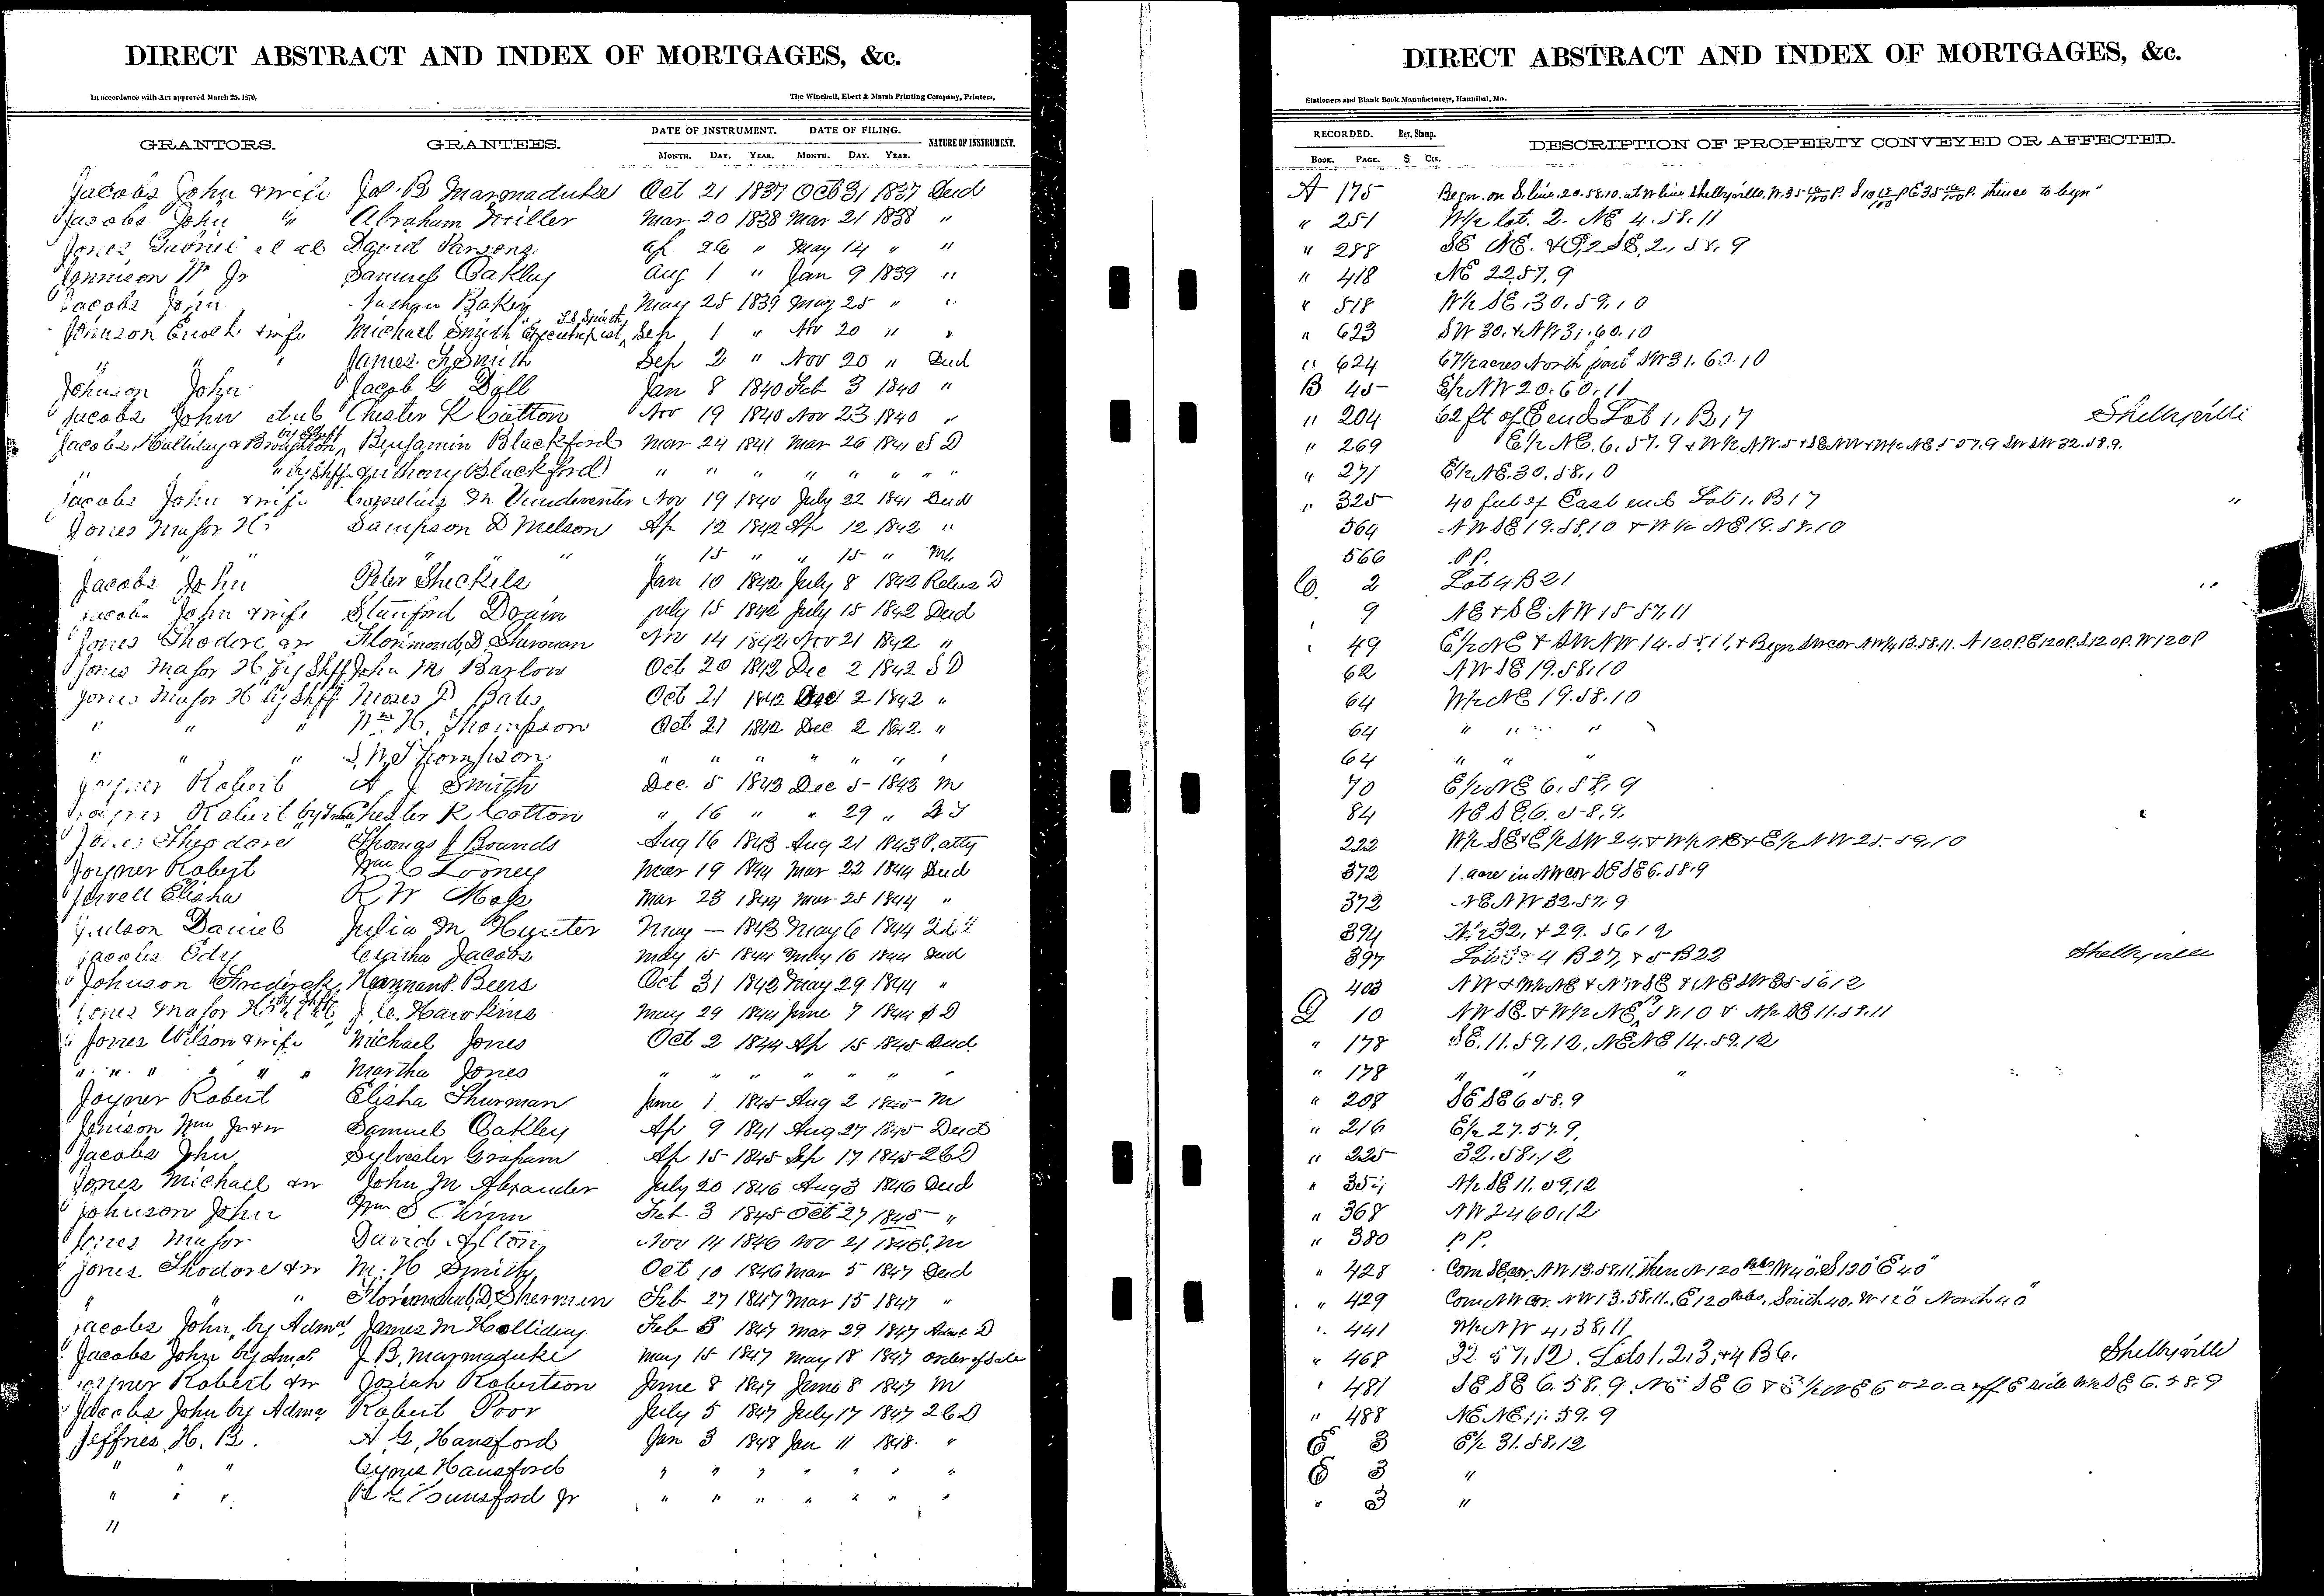 DIRECT ABSTRACT AND INDEX OF MORTGAGES, &c.
In accordance with Act approved March 25, 1870. The Winchell, Ebert & Marsh Printing Company, Printers,
GRANTORS. GRANTEES. DATE OF INSTRUMENT. DATE OF FILING. NATURE OF INSTRUMENT.
MONTH. DAY. YEAR. MONTH. DAY. YEAR.
Jacobs John & wife Jas. B Marmaduke Oct 21 1837 Oct 31 1837 Deed
Jacobs John " Abraham Miller Mar 20 1838 Mar 21 1838 "
Jones Gabriel et al David Parsons Ap 26 " May 14 " "
Jennison Wm Jr Samuel Oakley Aug 1 " Jan 9 1839 "
Jacobs John Baker May 25 1839 May 25 " "
Johnson Enoch & wife Michael Smith Sep 1 " Nov 20 " "
" " " James Smith Sep 2 " Nov 20 " Deed
Johnson John Jacob G Dill Jan 8 1840 Feb 3 1840 "
Jacobs John et ub Chester K Cotton Nov 19 1840 Nov 23 1840 "
Jacobs, Halliday & Broughton, by Shff Benjamin Blackford Mar 24 1841 Mar 26 1841 S D
" " by Shff Anthony Blackford " " " " " " "
Jacobs John & wife Cornelius M Vandeventer Nov 19 1840 July 22 1841 Deed
Jones Major H. Sampson D Melson Ap 12 1842 Ap 12 1842 "
" " " " " " 15 " " 15 " M.
Jacobs John Peter Shickels Jan 10 1842 July 8 1842 Release D
Jacobs John & wife Stanford Drain July 15 1842 July 15 1842 Deed
Jones Thodore & w Florimond D. Sherman Nov 14 1842 Nov 21 1842 "
Jones Major H. by Shff John M Barlow Oct 20 1842 Dec 2 1842 S D
Jones Major H by Shff Moses D Bates Oct 21 1842 Dec 2 1842 "
" " " Wm H. Thompson Oct 21 1842 Dec 2 1842. "
" " " Thompson " " " " " " "
Joyner Robert A J Smith Dec 5 1843 Dec 5 1843 M
Joyner Robert by Chester K Cotton " 16 " " 29 "
Jones Theodore Thomas J Bounds Aug 16 1843 Aug 21 1843 P. atty
Joyner Robert Wm C Looney Mar 19 1844 Mar 22 1844 Deed
Jewell Elisha R W Moss Mar 23 1844 Mar 25 1844 "
Judson Daniel Julia M Hunter May — 1843 May 6 1844
Jacobs Edy Jacobs May 15 1844 May 16 1844 Deed
Johnson Fredirck Hannan P. Beers Oct 31 1842 May 29 1844 "
Jones Major H by Shff J. C. Hawkins May 29 1844 June 7 1844 S D
Jones Wilson & wife Michael Jones Oct 2 1844 Ap 15 1845 Deed
" " " " " Martha Jones " " " " " " "
Joyner Robert Elisha Thurman June 1 1845 Aug 2 1845 M
Jenison Wm Jr & w Samuel Oakley Ap 9 1841 Aug 27 1845 Deed
Jacobs John Sylvester Graham Ap 15 1845 Sep 17 1845
Jones Michael & w John M Alexander July 20 1846 Aug 3 1846 Deed
Johnson John Wm S Chinn Feb. 3 1845 Oct 27 1845 "
Jones Major David Nov 14 1846 Nov 21 1846 M
Jones Thodore & w M. H Smith Oct 10 1846 Mar 5 1847 Deed
" " " Florimond D, Sherman Feb 27 1847 Mar 15 1847 "
Jacobs John by Admr. James M Holliday Feb 8 1847 Mar 29 1847 D
Jacobs John by Admr. J B, Marmaduke May 15 1847 May 18 1847 order of sale
Joyner Robert & w Josiah Robertson June 8 1847 June 8 1847 M
Jacobs John by Admr Robert Poor July 5 1847 July 17 1847
Jeffries, H. B. A G, Hansford Jan 3 1848 Jan 11 1848. "
" " " Cyrus Hansford " " " " " " "
" " " Hansford Jr " " " " " " "
"
DIRECT ABSTRACT AND INDEX OF MORTGAGES, &c.
Stationers and Blank Book Manufacturers, Hannibal, Mo.
RECORDED. Rev. Stamp. DESCRIPTION OF PROPERTY CONVEYED OR AFFECTED.
BOOK. PAGE. $ Cts.
A 175 Begn. on S. line. 20.58.10. at W line Shelbyville, thence to begn"
" 251 W½ lot. 2. NE 4.58.11
" 288 SE NE. & E½ SE, 2, 58, 9
" 418 NE 22.57.9
" 518 W½ SE, 30.59.10
" 623 SW 30. & NW 31.60.10
" 624 67½ acres North part SW 31.60.10
B 45 E½ NW 20.60.11
" 204 62 ft of E end Lot 1, B. 17 Shelbyville
" 269 E½ NE. 6.57.9 & W½ NW.5 & SE NW & W½ NE.5 57.9 SW SW 32.58.9.
" 271 E½ NE. 30.58.10
" 325 40 feet of East end Lot 1. B 17 "
564 NW SE 19.58.10 & W½ NE 19.58.10
566 P P.
C. 2 Lot 4 B 21 "
9 NE & SE. NW 15 57.11
49 E½ NE & SW NW 14.58.11, & Begn SW cor NW¼ 13.58.11. N 120 P. E 120 P. S 120 P. W 120 P
62 NW SE 19.58.10
64 W½ NE 19.58.10
64 " " "
64 " " "
70 E½ NE 6.58.9
84 NE SE 6. 58.9.
222 W½ SE & E½ SW 24, & W½ NE & E½ NW 25.59.10
372 1. acre in NW cor SE SE 6.58.9
372 NE NW 32.57.9
394 N½ 32, & 29. 56 12
397 Lots 3 & 4 B 27, & 5 B 22 Shelbyville
403 NW & W½ NE & NW SE & NE SW 35 56 12
D 10 NW SE. & W½ NE, 19 58.10 & N½ SE 11.58.11
" 178 SE. 11.59.12. NE NE 14.59.12
" 178 " " "
" 208 SE SE 6 58.9
" 216 E½ 27.57.9,
" 225 32.58.12
" N½ SE 11.59.12
" 368 NW 24 60.12
" 380 P P.
" 428 Com SE cor, NW 13.58.11, then N 120 W 40 S 120 E 40
" 429 Com NW cor. NW 13.58.11. E 120 South 40, W 120 North 40
" 441 W½ NW 4,58,11
" 468 32 57.12. Lots 1, 2, 3, & 4 B 6. Shelbyville
" 481 SE SE 6.58.9, NE SE 6 & E½ NE 6 & 20. a off E side W½ SE 6.58.9
" 488 NE NE 11.59.9
E 3 E½ 31.58.12
E 3 "
" 3 "